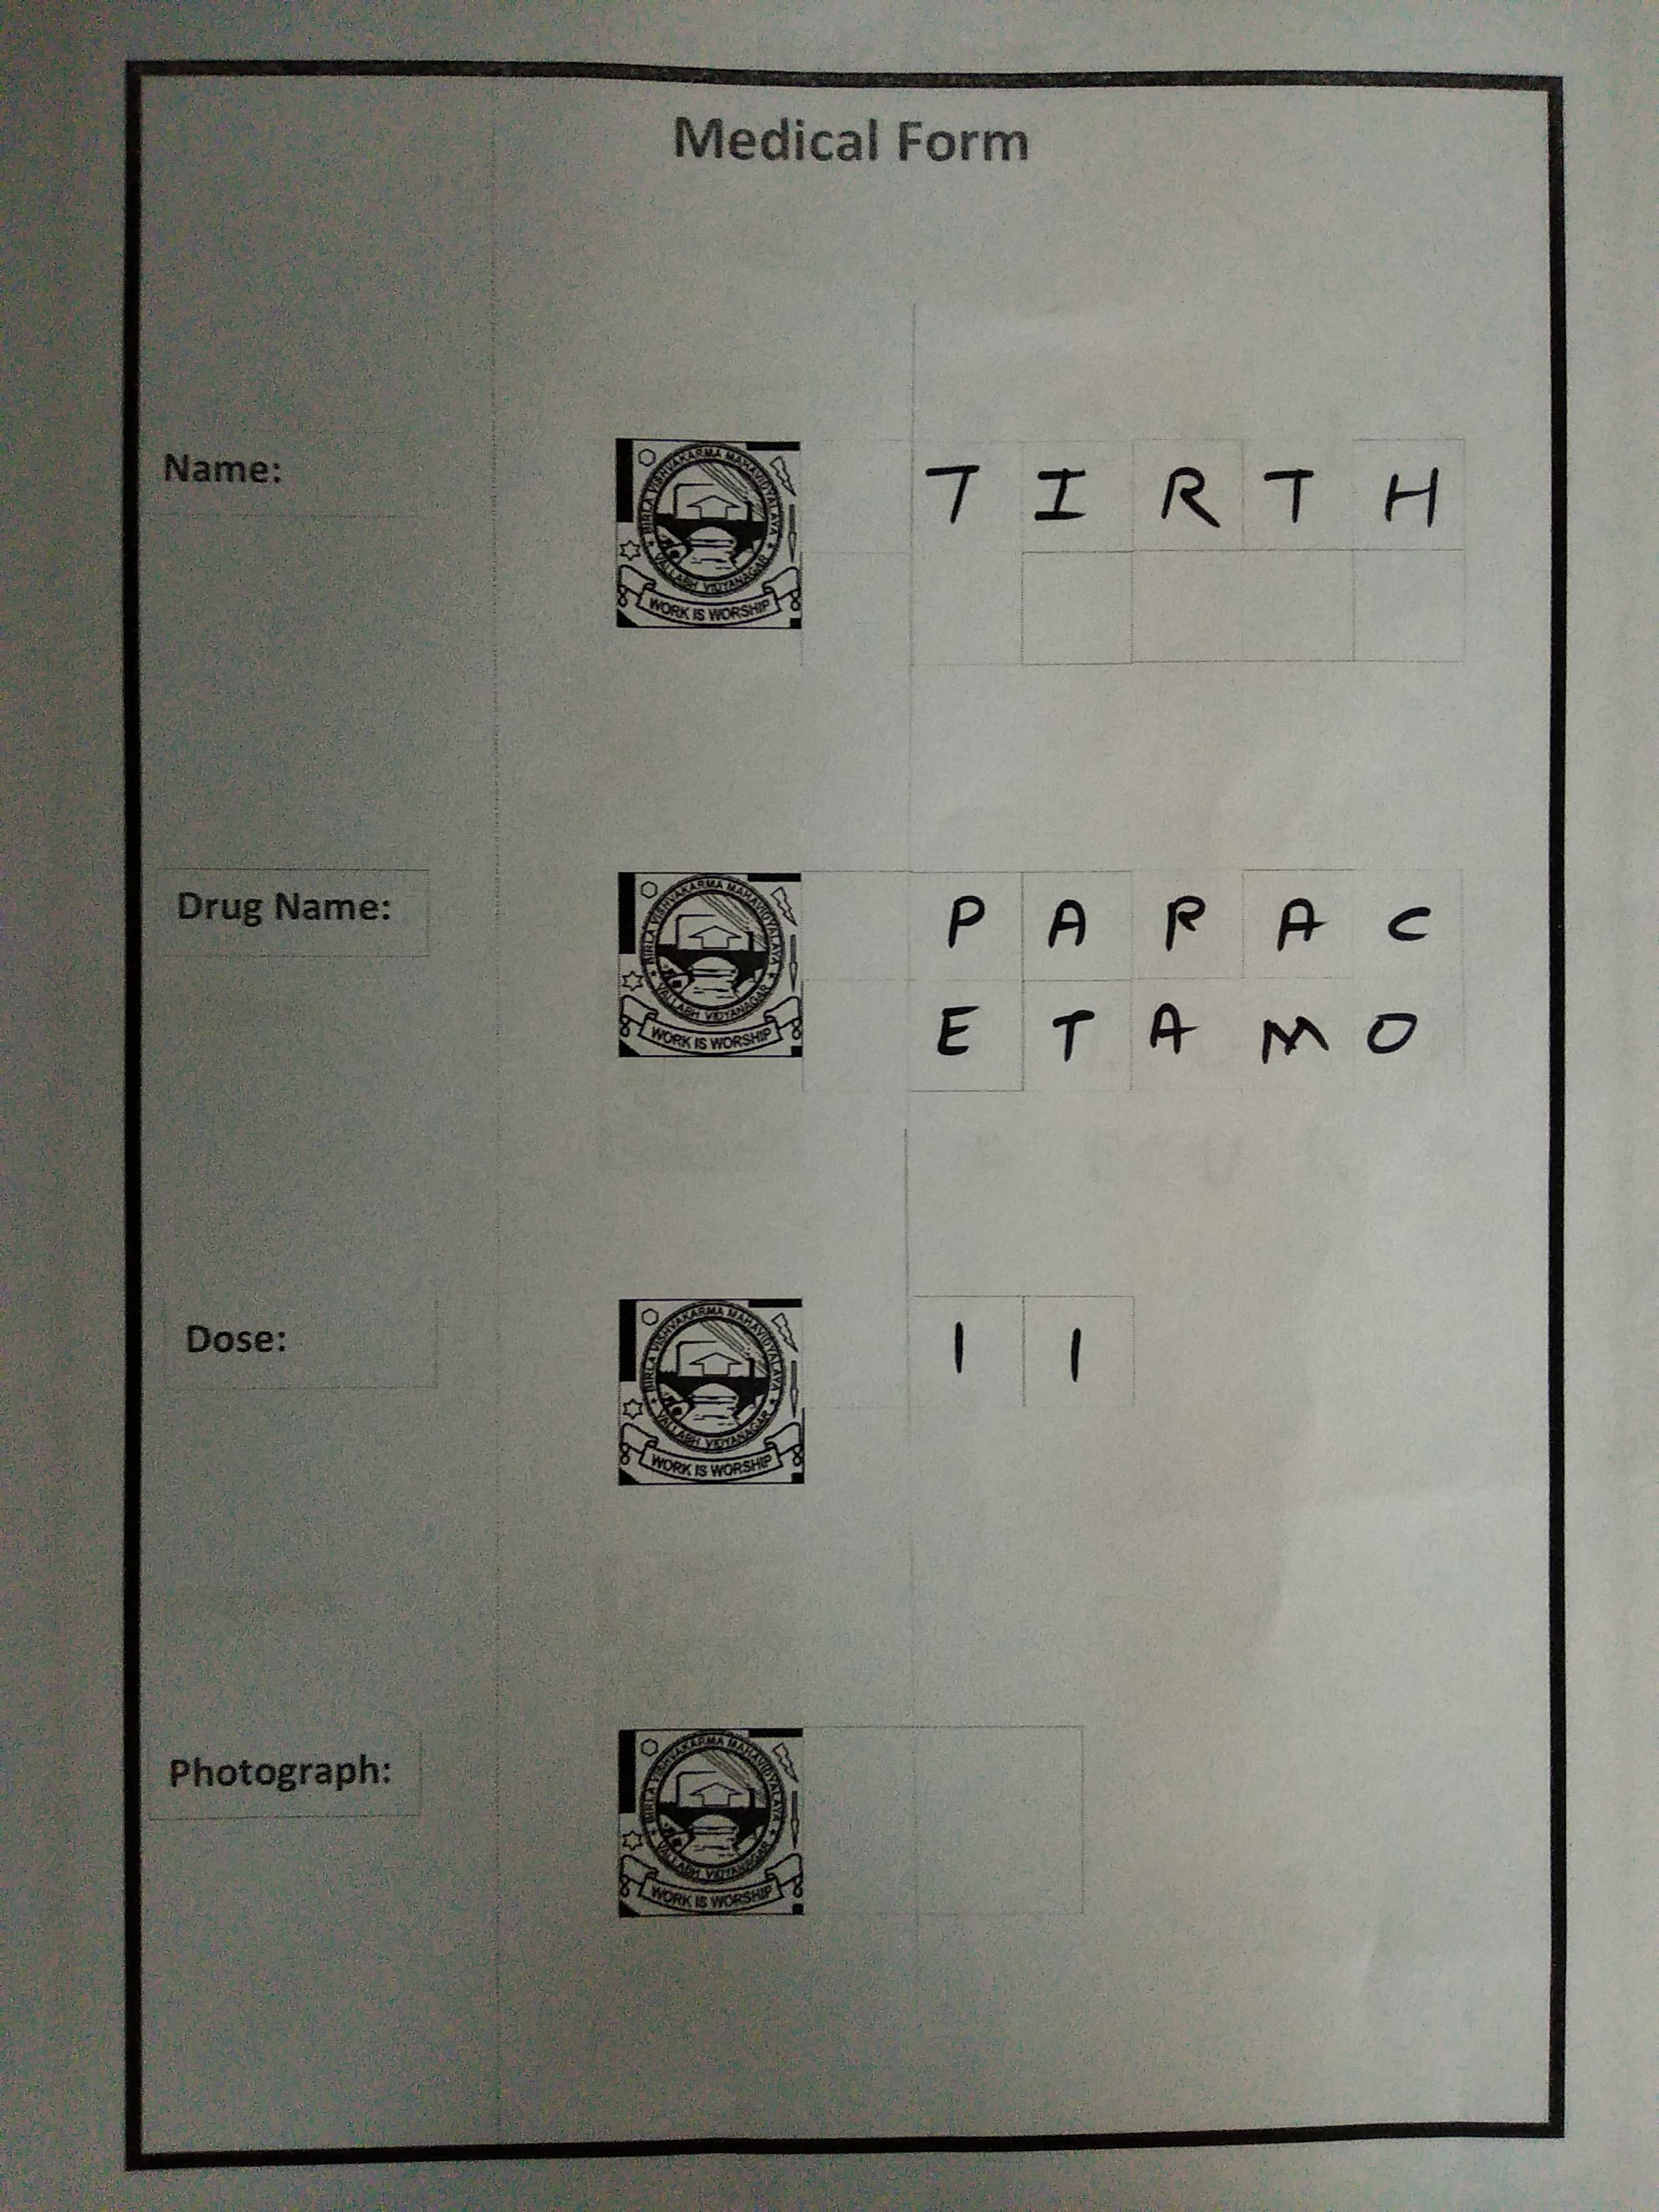 Medical Form
Name:
BIRLA VISHVAKARMA MAHAVIDYALAYA
VALLABH VIDYANAGAR
WORK IS WORSHIP
T I R T H
Drug Name:
BIRLA VISHVAKARMA MAHAVIDYALAYA
VALLABH VIDYANAGAR
WORK IS WORSHIP
P A R A C
E T A M O
Dose:
BIRLA VISHVAKARMA MAHAVIDYALAYA
VALLABH VIDYANAGAR
WORK IS WORSHIP
1 1
Photograph:
BIRLA VISHVAKARMA MAHAVIDYALAYA
VALLABH VIDYANAGAR
WORK IS WORSHIP